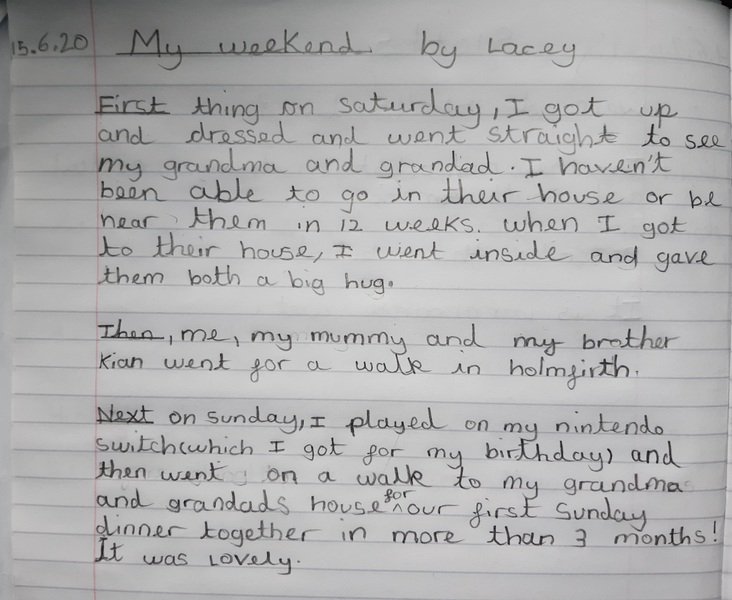 15.6.20 My weekend. by Lacey
First thing on saturday, I got up
and dressed and went straight to see
my grandma and grandad. I haven't
been able to go in their house or be
near them in 12 weeks. when I got
to their house, I went inside and gave
them both a big hug.
Then, me, my mummy and my brother
Kian went for a walk in holmfirth.
Next on sunday, I played on my nintendo
switch(which I got for my birthday) and
then went on a walk to my grandma
and grandads house for our first Sunday
dinner together in more than 3 months!
It was Lovely.